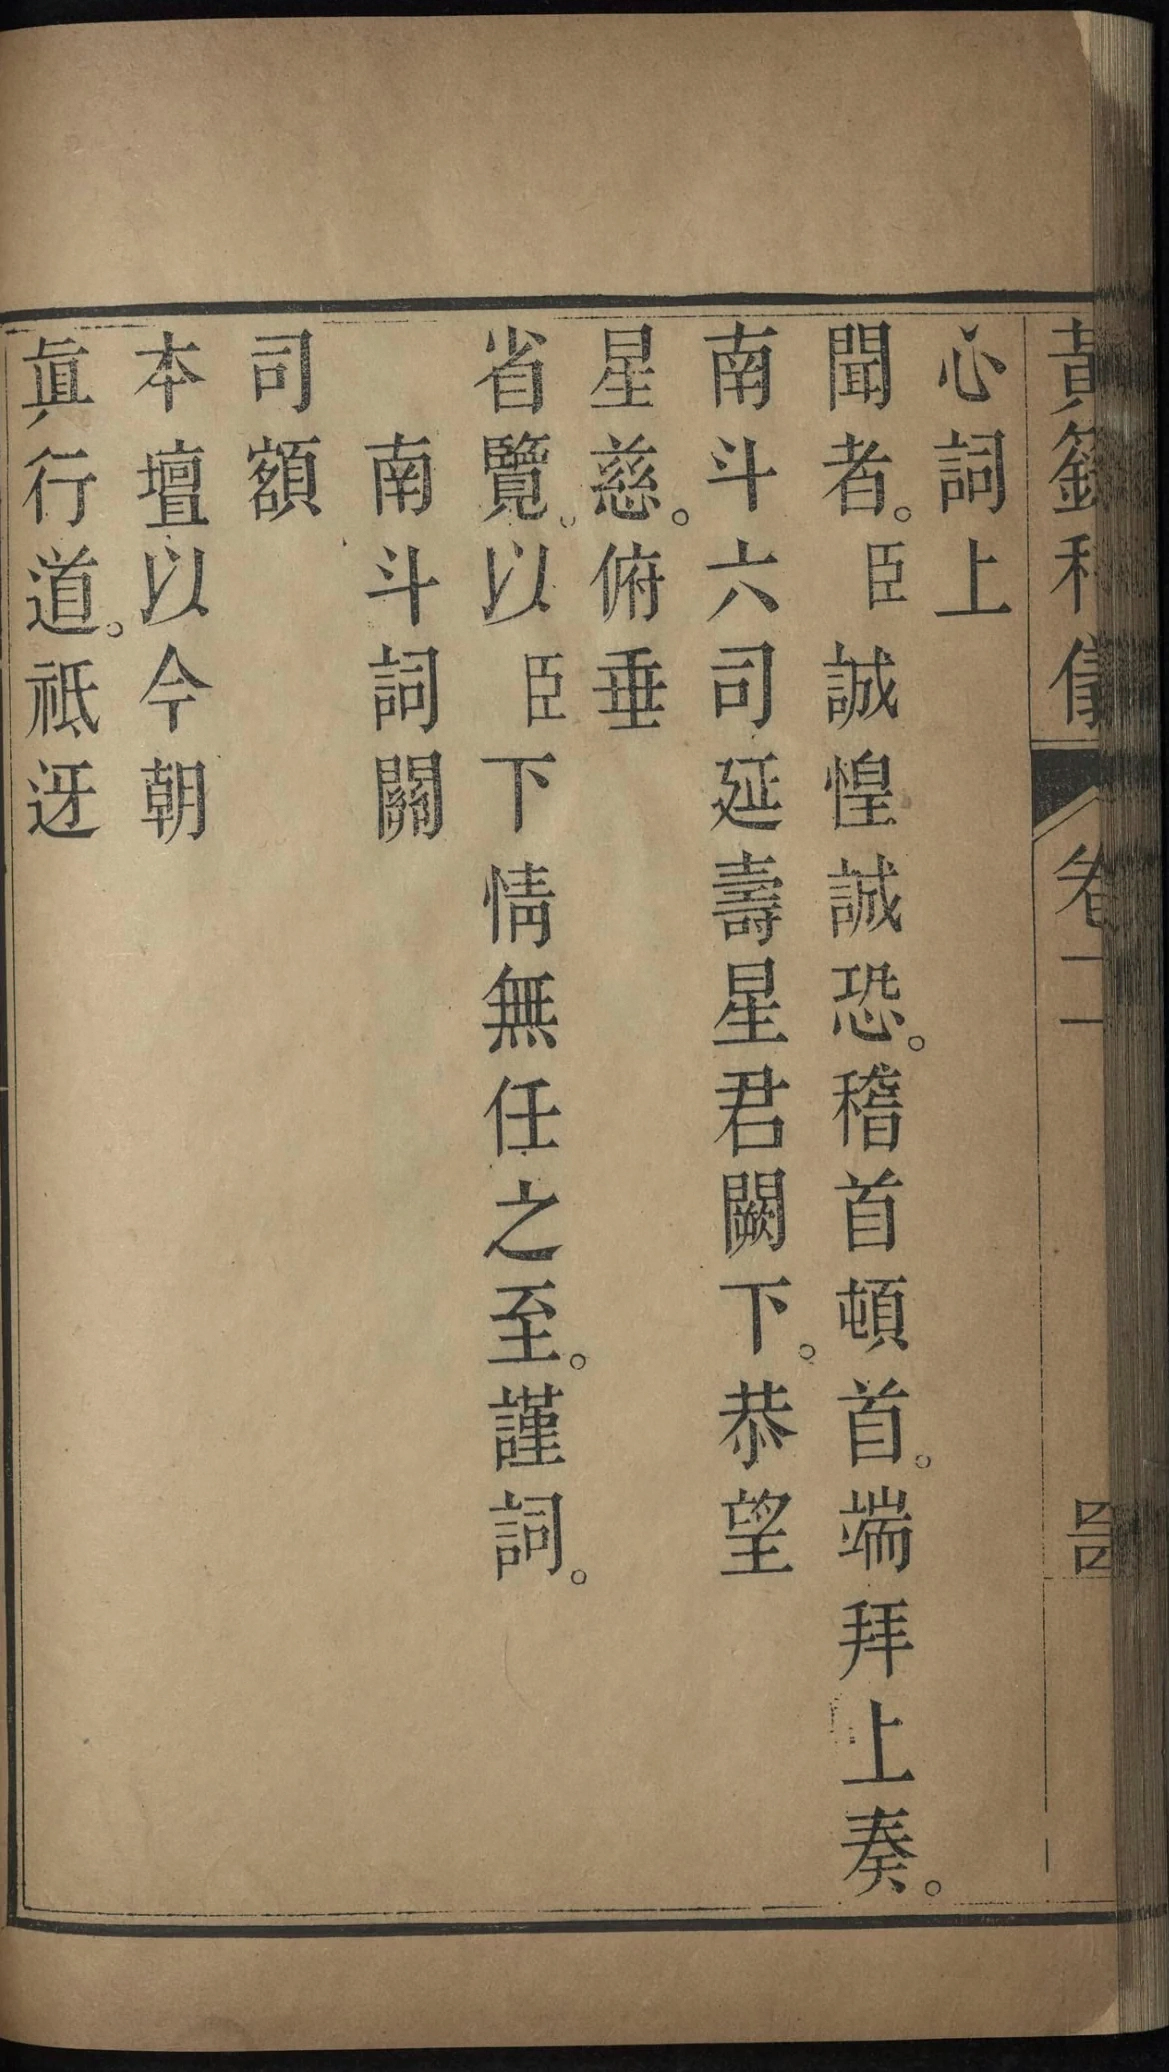 黃籙科儀 卷二
心詞上
聞者。臣誠惶誠恐。稽首頓首。端拜上奏。
南斗六司延壽星君闕下。恭望
星慈。俯垂
省覽。以臣下情無任之至。謹詞。
南斗詞關
司額
本壇以今朝
眞行道。祗迓